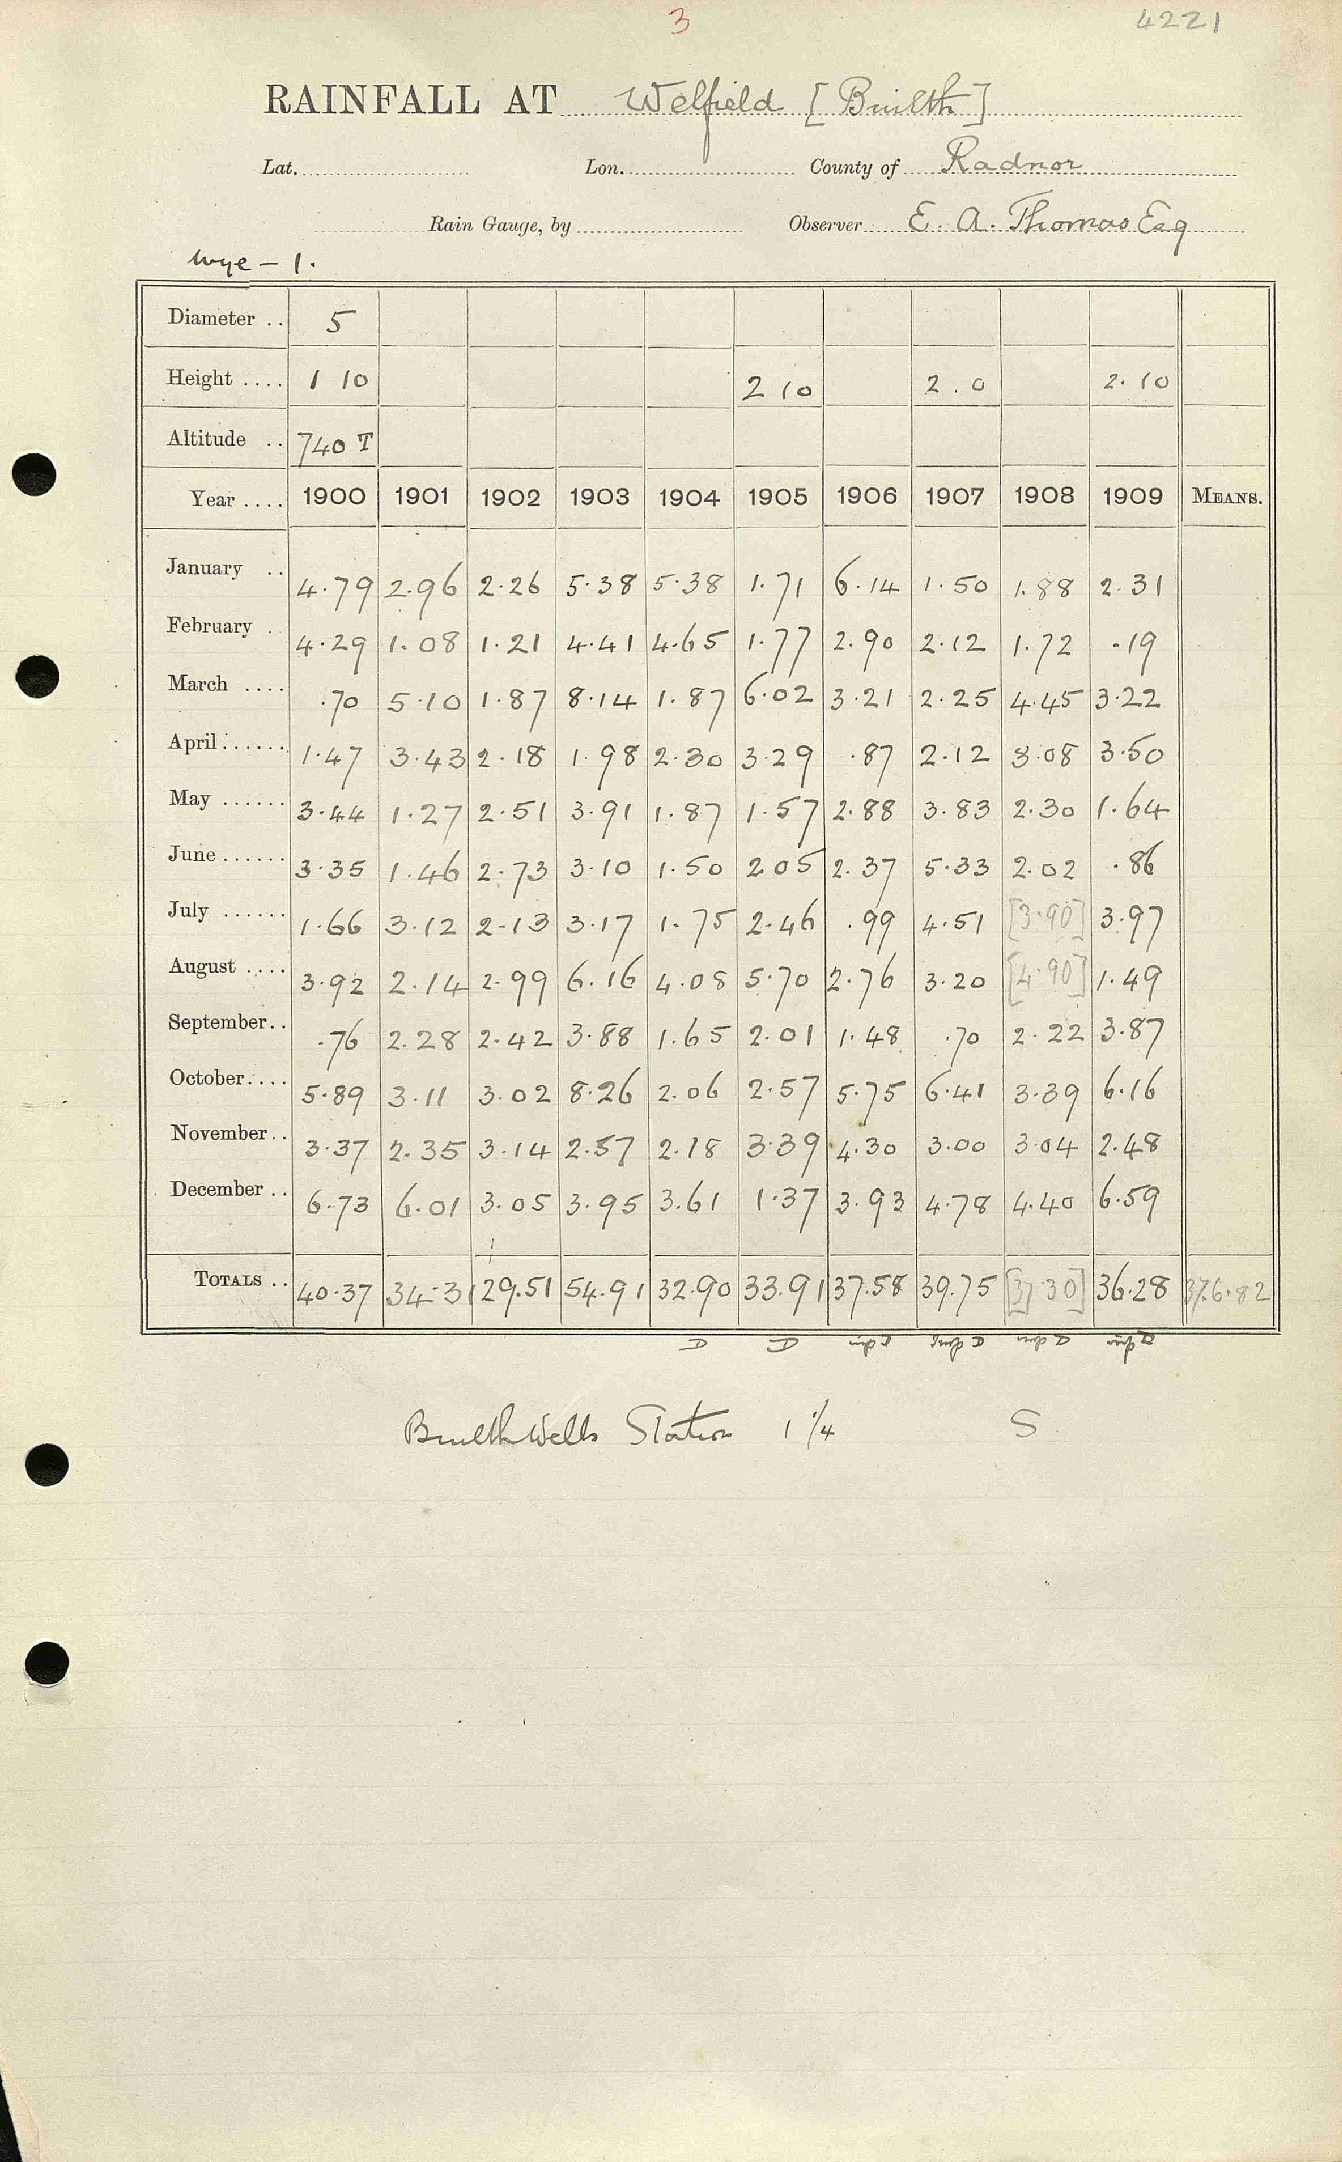 3
4221
RAINFALL AT Welfield [Builth]
Lat. Lon. County of Radnor
Rain Gauge, by Observer E. A. Thomas Esq
Wye - 1.
Diameter .. 5
Height .... 1 10 2 10 2.0 2.10
Altitude .. 740 T
Year .... 1900 1901 1902 1903 1904 1905 1906 1907 1908 1909 MEANS.
January .. 4.79 2.96 2.26 5.38 5.38 1.71 6.14 1.50 1.88 2.31
February .. 4.29 1.08 1.21 4.41 4.65 1.77 2.90 2.12 1.72 .19
March .... .70 5.10 1.87 8.14 1.87 6.02 3.21 2.25 4.45 3.22
April ...... 1.47 3.43 2.18 1.98 2.30 3.29 .87 2.12 3.08 3.50
May ...... 3.44 1.27 2.51 3.91 1.87 1.57 2.88 3.83 2.30 1.64
June ...... 3.35 1.46 2.73 3.10 1.50 2.05 2.37 5.33 2.02 .86
July ...... 1.66 3.12 2.13 3.17 1.75 2.46 .99 4.51 [3.90] 3.97
August .... 3.92 2.14 2.99 6.16 4.08 5.70 2.76 3.20 [4.90] 1.49
September.. .76 2.28 2.42 3.88 1.65 2.01 1.48 .70 2.22 3.87
October .... 5.89 3.11 3.02 8.26 2.06 2.57 5.75 6.41 3.39 6.16
November .. 3.37 2.35 3.14 2.57 2.18 3.39 4.30 3.00 3.04 2.48
December .. 6.73 6.01 3.05 3.95 3.61 1.37 3.93 4.78 4.40 6.59
TOTALS .. 40.37 34.31 29.51 54.91 32.90 33.91 37.58 39.75 [37.30] 36.28 376.82
D D
Builth Wells Station 1 1/4 S